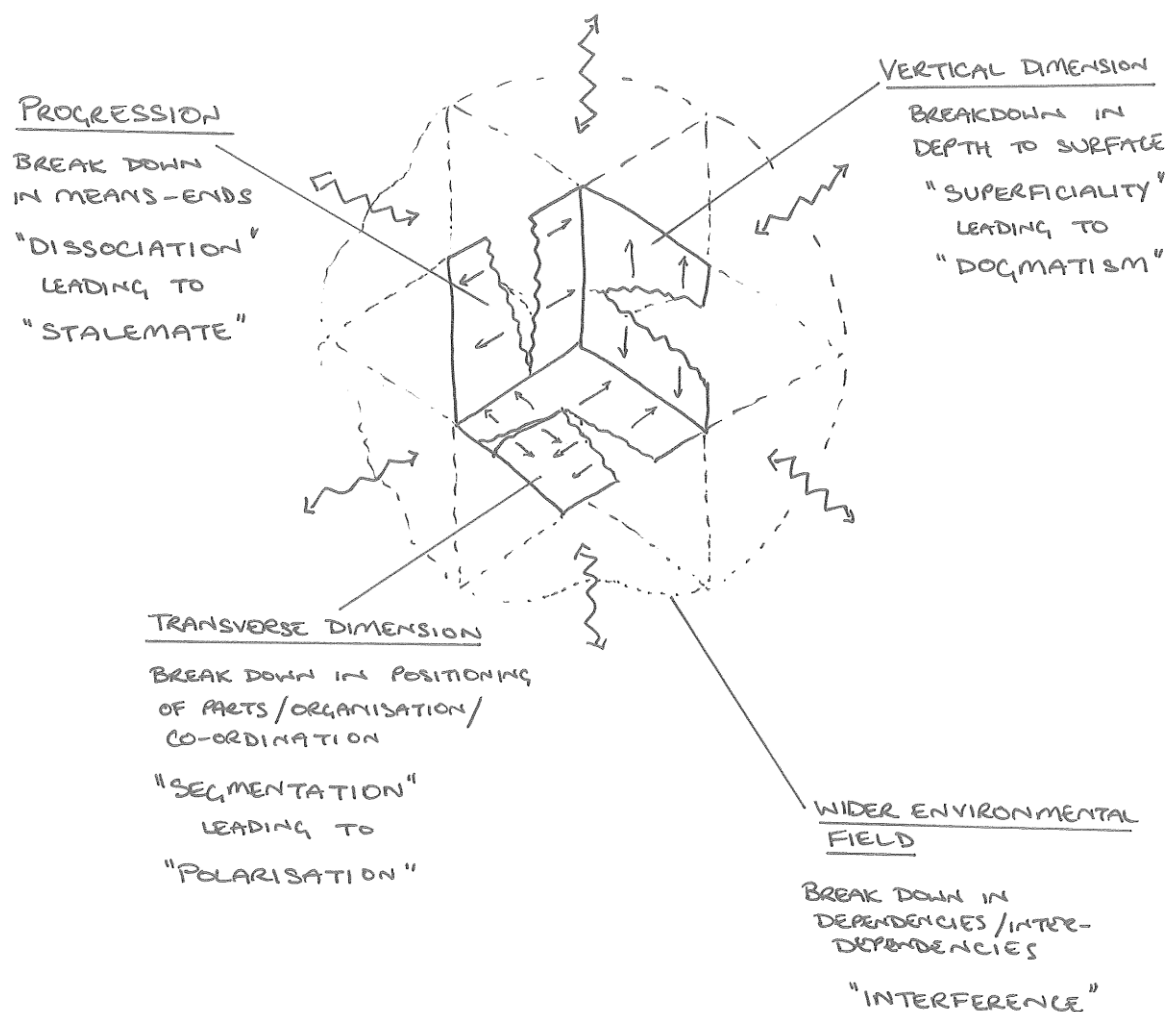 PROGRESSION
BREAK DOWN
IN MEANS-ENDS
"DISSOCIATION"
LEADING TO
"STALEMATE"
VERTICAL DIMENSION
BREAKDOWN IN
DEPTH TO SURFACE
"SUPERFICIALITY"
LEADING TO
"DOGMATISM"
TRANSVERSE DIMENSION
BREAK DOWN IN POSITIONING
OF PARTS/ORGANISATION/
CO-ORDINATION
"SEGMENTATION"
LEADING TO
"POLARISATION"
WIDER ENVIRONMENTAL
FIELD
BREAK DOWN IN
DEPENDENCIES/INTER-
DEPENDENCIES
"INTERFERENCE"